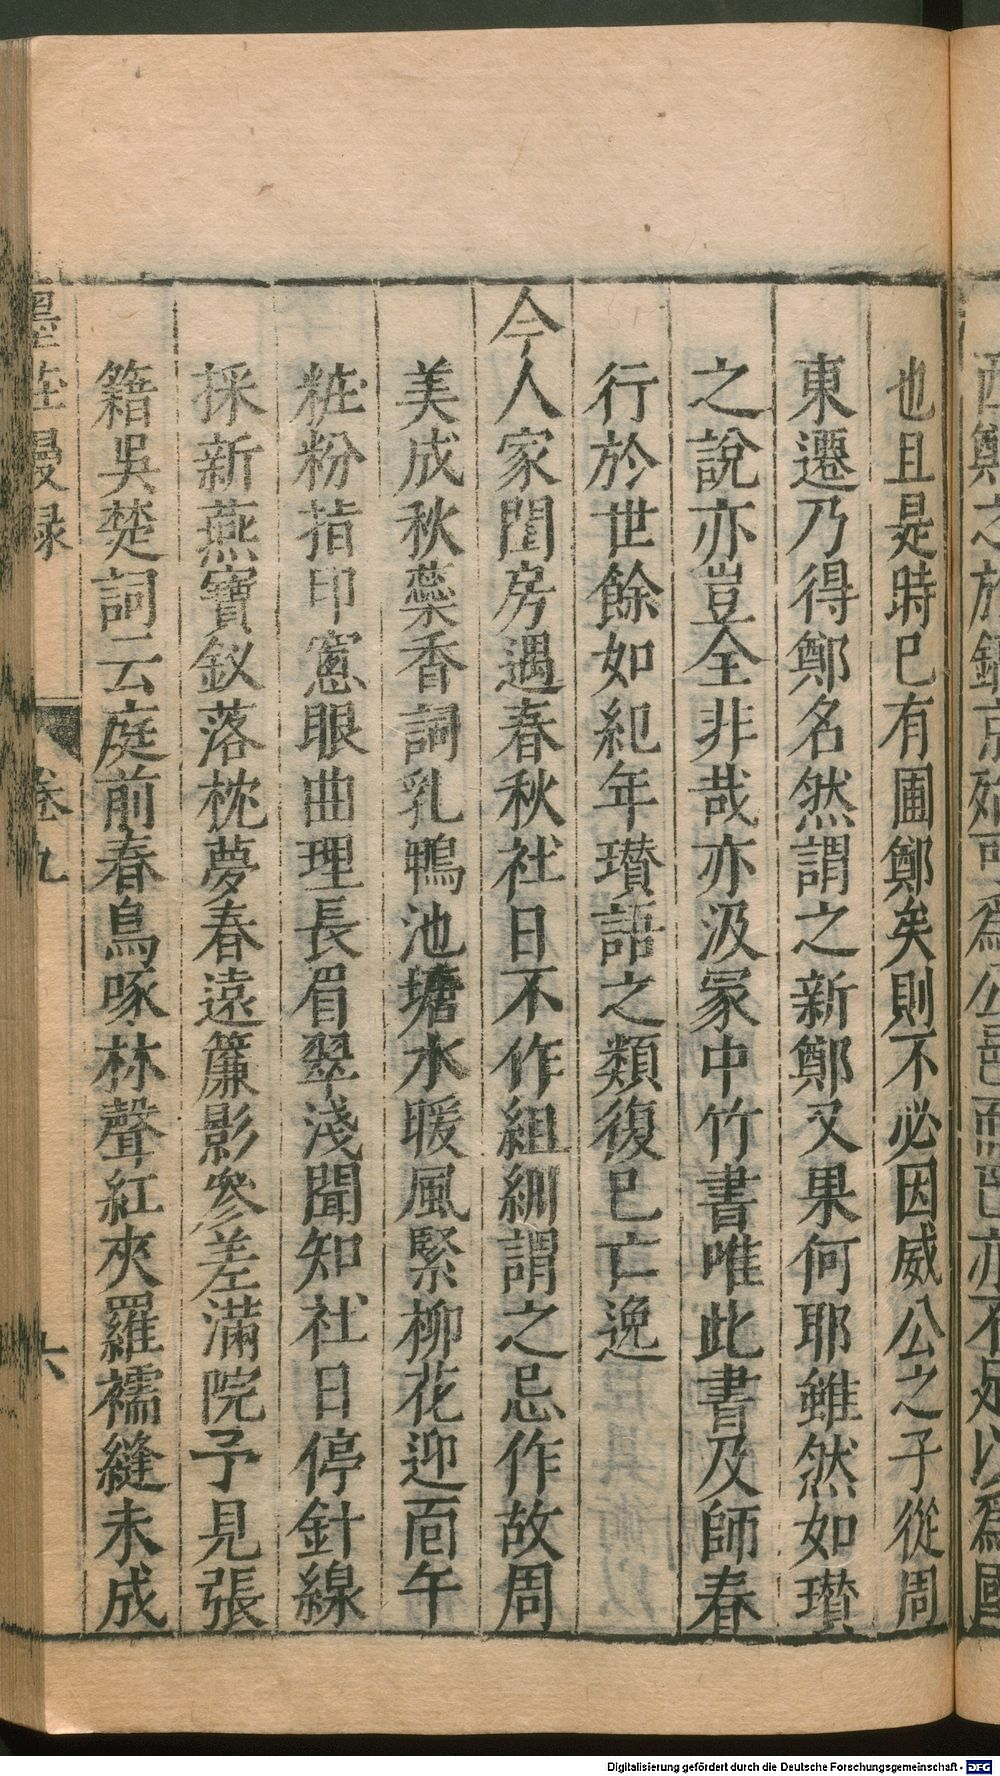 也且是時已有圃鄭矣則不必因威公之子從周
東遷乃得鄭名然謂之新鄭又果何耶雖然如瓚
之說亦豈全非哉亦汲冢中竹書唯此書及師春
行於世餘如紀年瓚語之類復已亡逸
今人家閨房遇春秋社日不作組紃謂之忌作故周
美成秋蘂香詞乳鴨池塘水暖風緊柳花迎面午
粧粉指印窻眼曲理長眉翠淺聞知社日停針線
採新燕寶釵落枕夢春遠簾影參差滿院予見張
籍吳楚詞云庭前春鳥啄林聲紅夾羅襦縫未成
墨莊漫録 卷九 六
Digitalisierung gefördert durch die Deutsche Forschungsgemeinschaft - DFG